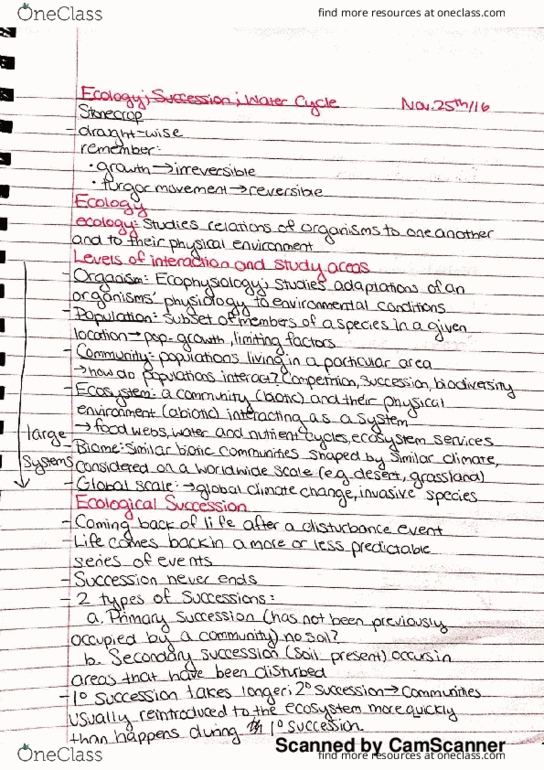 OneClass
find more resources at oneclass.com
Ecology; Succession; Water Cycle Nov. 25th/16
Stonecrop
- draught-wise
remember:
• growth → irreversible
• turgor movement → reversible
Ecology
ecology: Studies relations of organisms to one another
and to their physical environment
Levels of interaction and study areas
- Organism: Ecophysiology; studies adaptations of an
organisms' physiology to environmental conditions
- Population: subset of members of a species in a given
location → pop. growth, limiting factors
- Community: populations living in a particular area
→ how do populations interact? Competition, Succession, biodiversity
- Ecosystem: a community (biotic) and their physical
environment (abiotic) interacting as a system
→ food webs, water and nutrient cycles, ecosystem services
large
- Biome: Similar biotic communities shaped by similar climate,
Systems
considered on a worldwide scale (e.g. desert, grassland)
- Global scale: → global climate change, invasive species
Ecological Succession
- Coming back of life after a disturbance event
- Life comes back in a more or less predictable
series of events
- Succession never ends
- 2 types of Successions:
a. Primary Succession (has not been previously
occupied by a community) no soil?
b. Secondary succession (soil present) occurs in
areas that have been disturbed
- 1° succession takes longer; 2° succession → Communities
usually reintroduced to the ecosystem more quickly
than happens during 1° succession.
Scanned by CamScanner
OneClass
find more resources at oneclass.com